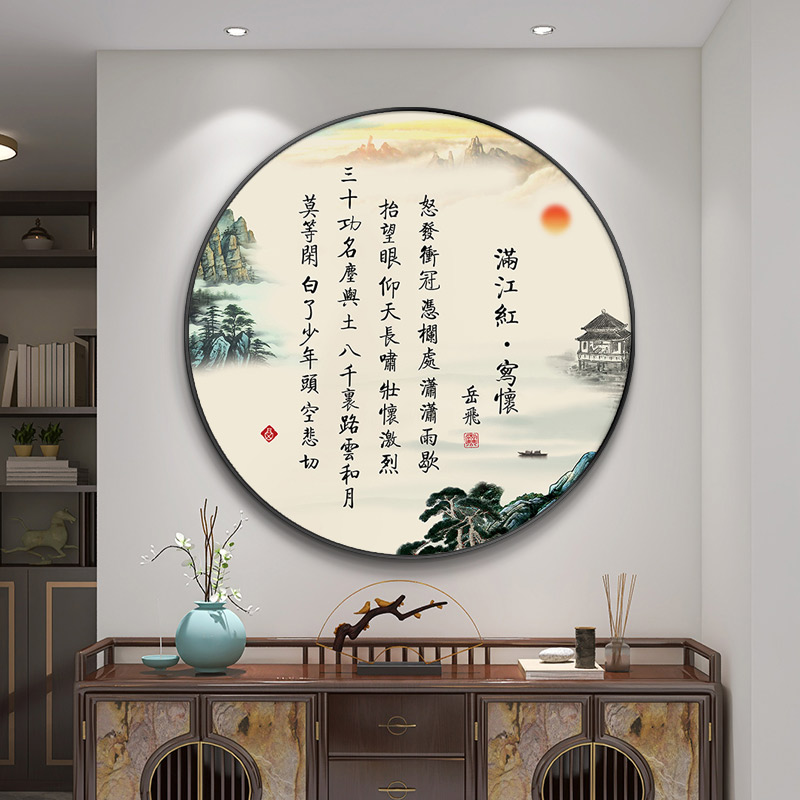 滿江紅·寫懷
岳飛
怒發衝冠 憑欄處 瀟瀟雨歇
抬望眼 仰天長嘯 壯懷激烈
三十功名塵與土 八千裏路雲和月
莫等閑 白了少年頭 空悲切